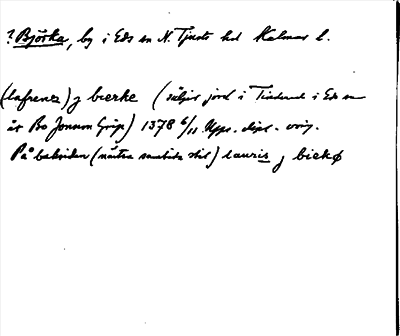 ? Björka, by i Eds sn N. Tjusts hd Kalmar l.
(lafrenz) j bierke (säljer jord i i Eds sn
åt Bo Jonsson Grip) 1378 6/11 Upps. dipl. orig.
På baksidan (nästan samtida stil) lauris j birkø